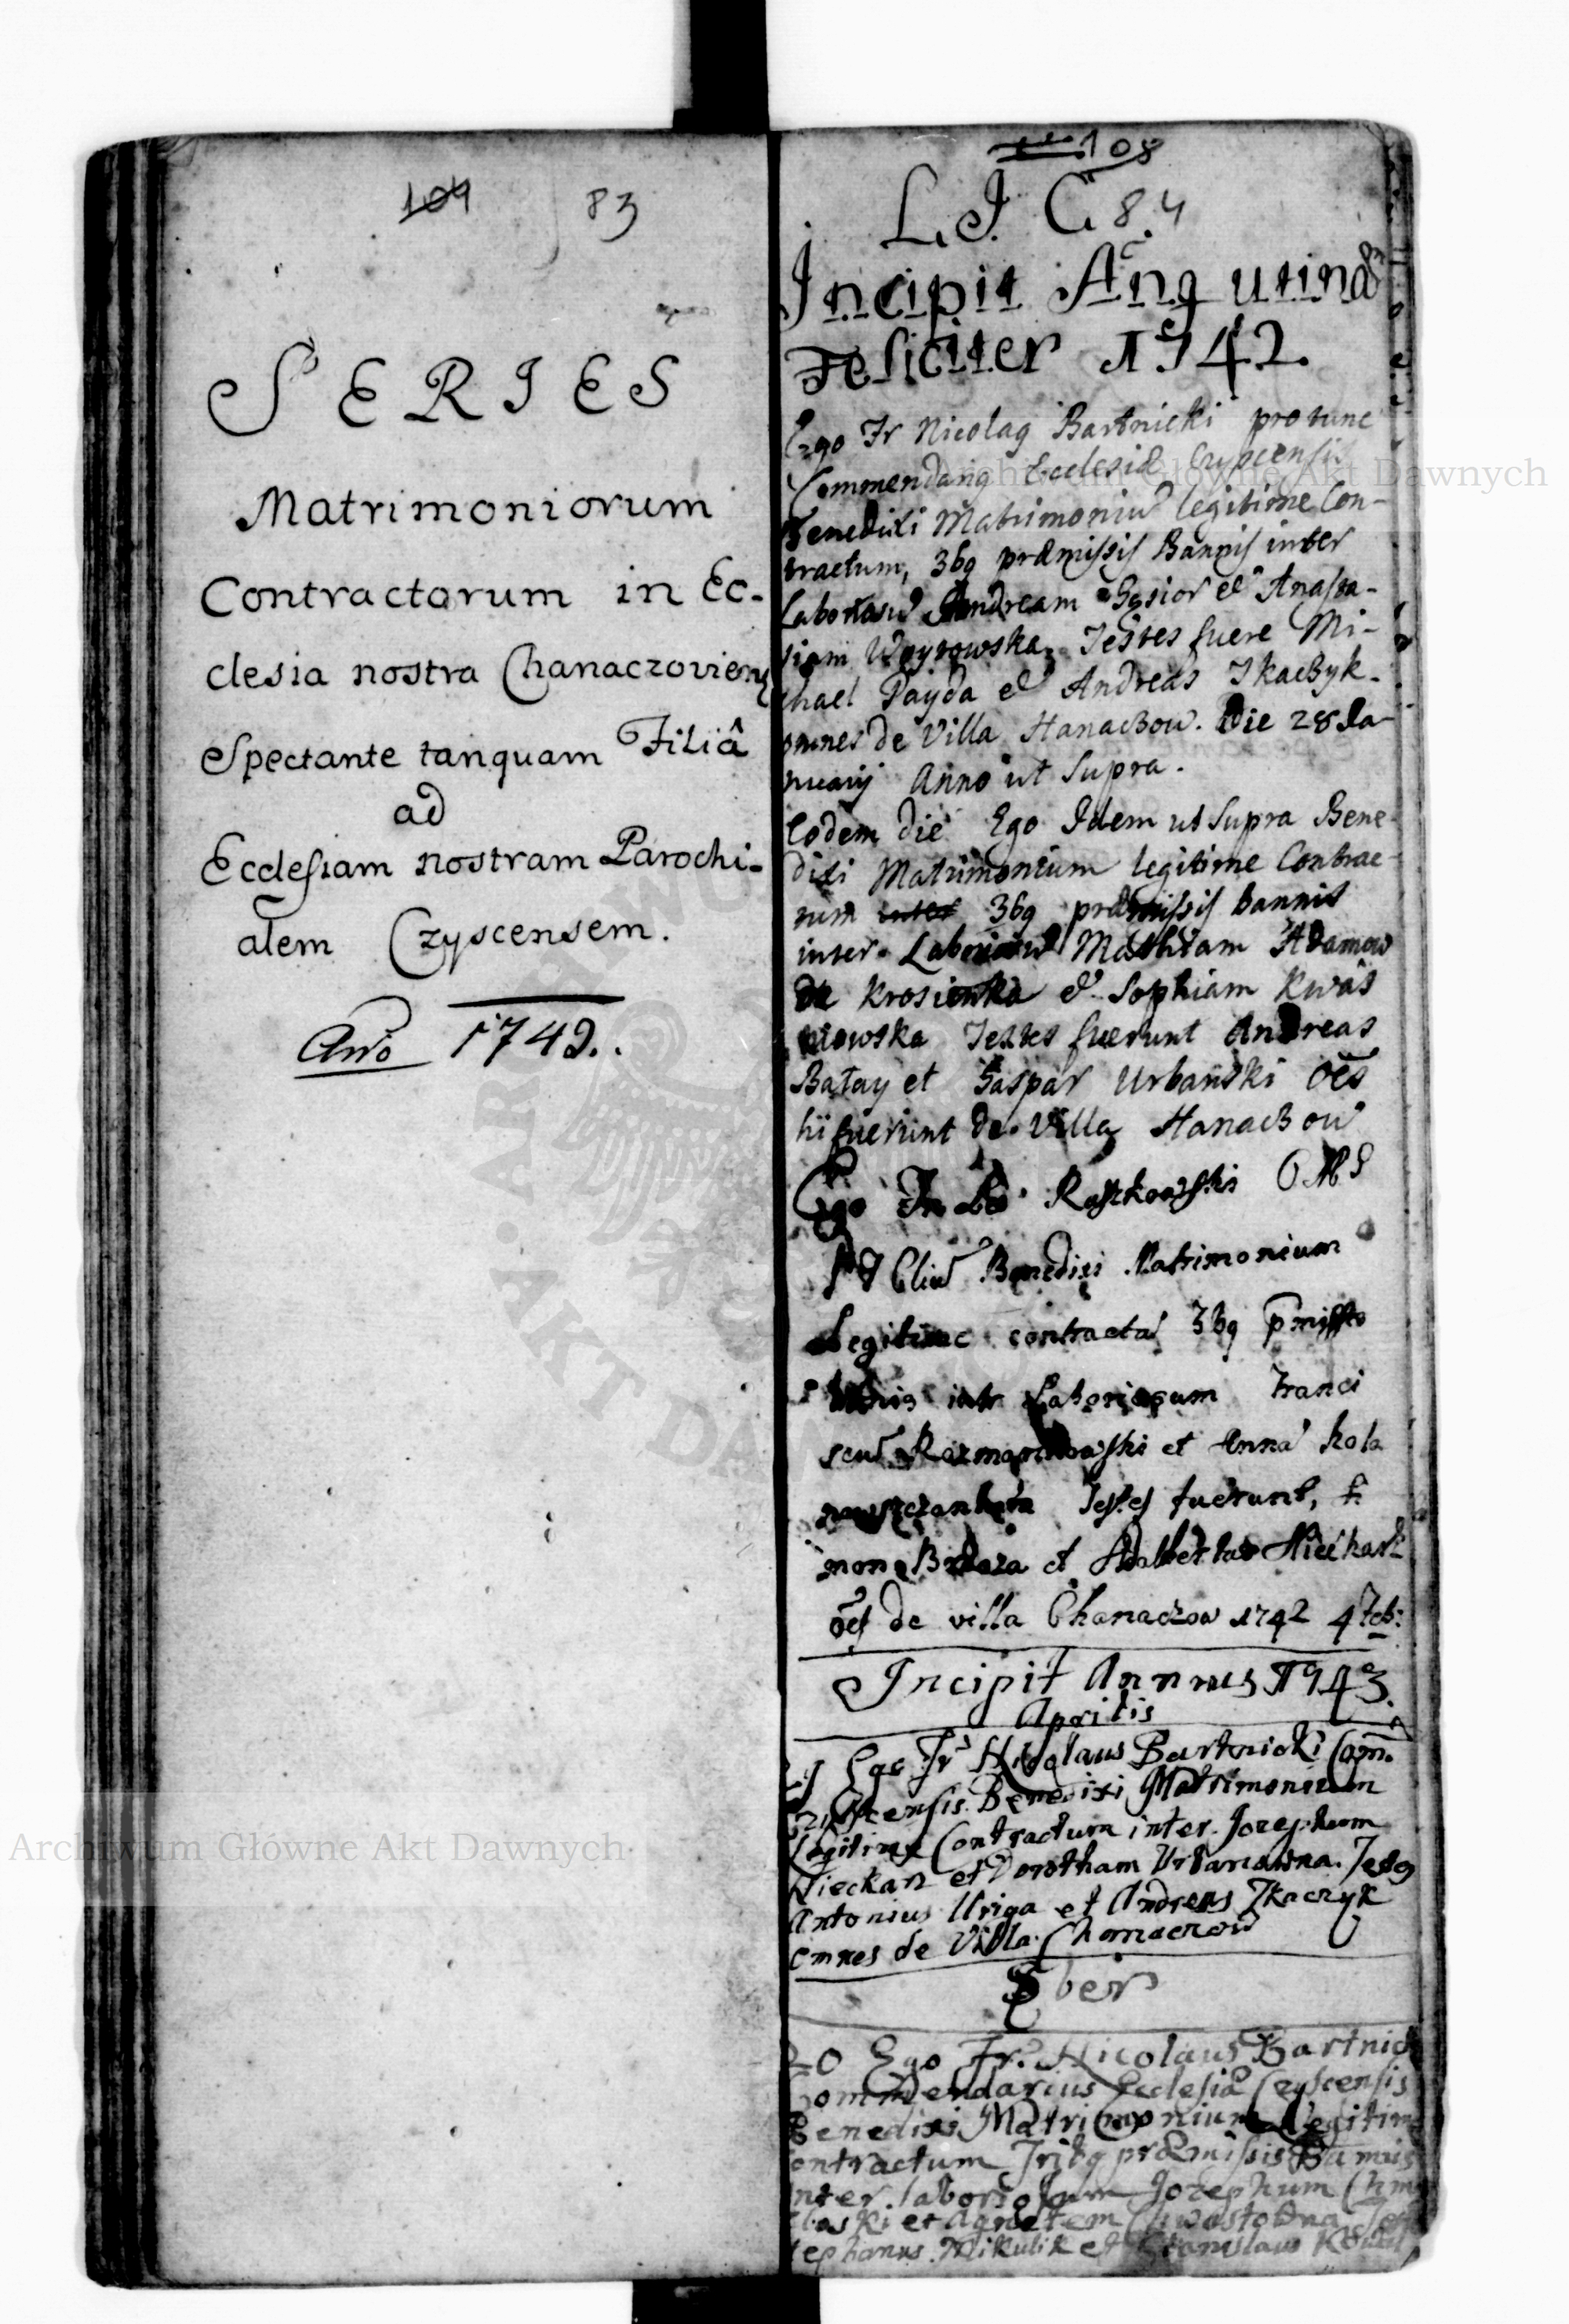 109 83
SERIES
Matrimoniorum
Contractorum in Ec-
clesia nostra Chanaczoviens
Spectante tanquam Filiâ
ad
Ecclesiam nostram Parochi-
alem Czyscensem.
Año 1742.
108
L. J. C. 84
Incipit Anq utinã
Feliciter 1742.
Ego Fr Nicolaq Bartnicki protunc
Commendariq Ecclesiæ Czyscensis
Benedixi Matrimoniũ legitime Con-
tractum, 3bq præmissis Bannis inter
Laboriosũ Andream Gąsior et Anasta-
siam Testes fuere Mi-
chael Payda et Andreas Tkaczyk
omnes de Villa Hanaczow. Die 28 Ja-
nuarij Anno ut Supra.
Eodem die Ego Idem ut Supra Bene-
dixi Matrimonium legitime Contrac-
tum inter 3bq præmissis bannis
inter Laboriosũ Mathiam Adamow
de Krosienka et Sophiam Kwas
niowska Testes fuerunt Andreas
Batay et Gaspar Urbański oẽs
hi fuerunt de Villa Hanaczow
Ego Fr Roszkowski
Benedixi Matrimonium
Legitime contractũ 3bq pmissis
intr Laboriosum Franci
scũ et Annã Kola
Testes fuerunt,
mon et Adalbertus Nieckarz
oẽs de villa Chanaczow 1742 4
Incipit Annus 1743.
Aprilis
Ego Fr Nicolaus Bartnicki Com.
Czyscensis Benedixi Matrimonium
Legitime Contractum inter Jozephum
Nieckarz et Dorotham Urbanowna. Testes
Antonius Uriga et Andreas Tkaczyk
omnes de Villa Chanaczow
8ber
20 Ego Fr. Nicolaus Bartnick
Commendarius Ecclesiæ Czyscensis
Benedixi Matrimonium Legitime
ontractum Tribq præmissis Bannis
nter laboriosum Jozephum Chm
et Agnetem Tes
tephanus Mikulik et Stanislaus
Archiwum Główne Akt Dawnych
Archiwum Główne Akt Dawnych